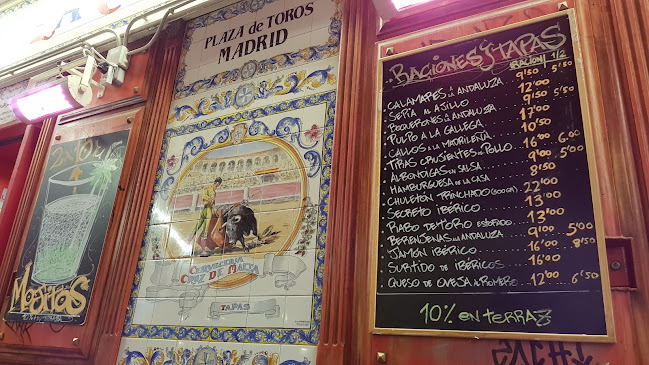 PLAZA de TOROS
MADRID
CERVECERIA
CRUZ DE MALTA
TAPAS
2x10
MOJITOS
RACIONES Y TAPAS
RACION 1/2
CALAMARES A LA ANDALUZA 9'50 5'50
SEPIA AL AJILLO 12'00
BOQUERONES A LA ANDALUZA 9'50 5'50
PULPO A LA GALLEGA 17'00
CALLOS A LA MADRILEÑA 10'50
TIRAS CRUJIENTES DE POLLO 16'00 6'00
ALBONDIGAS EN SALSA 9'00 5'00
HAMBURGUESA DE LA CASA 12'00
CHULETON TRINCHADO (500GR) 22'00
SECRETO IBÉRICO 13'00
RABO DE TORO ESTOFADO 13'00
BERENJENAS A LA ANDALUZA 9'00 5'00
JAMÓN IBÉRICO 16'00 8'50
SURTIDO DE IBÉRICOS 16'00
QUESO DE OVEJA AL ROMERO 12'00 6'50
10% EN TERRAZA